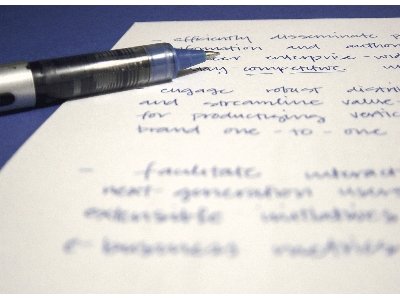 - efficiently disseminate
information and
enterprise - wid
competitive
engage robust distri
and streamline value-
for productizing vertic
brand one - to - one
- facilitate interac
next-generation users
extensible initiatives
e-business metrics